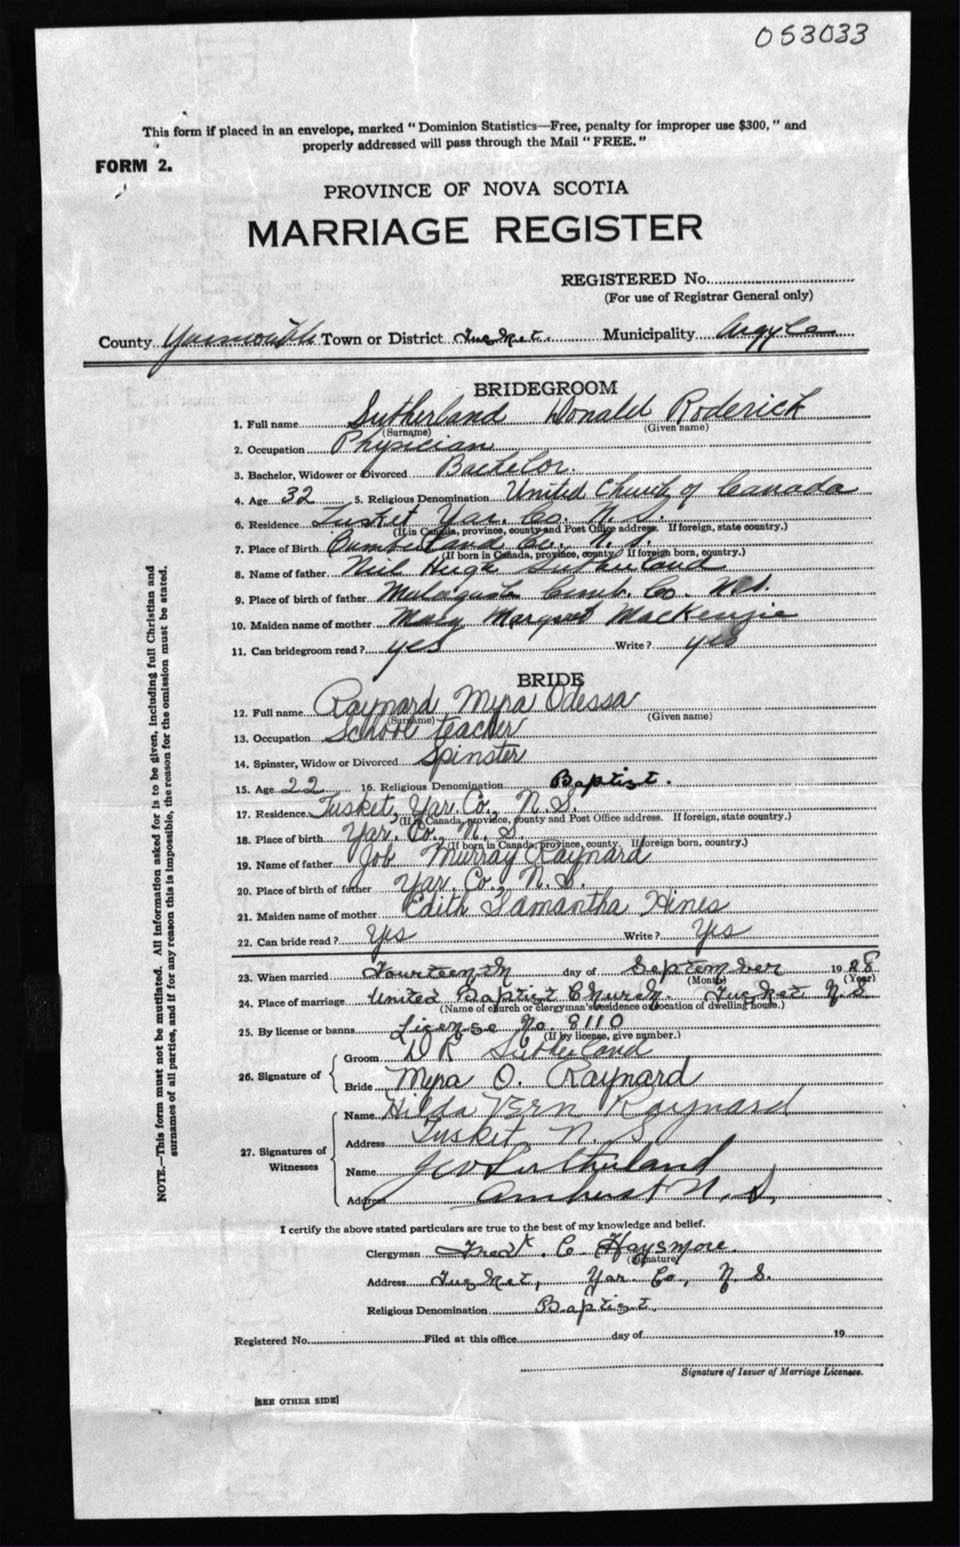 053033
This form if placed in an envelope, marked "Dominion Statistics—Free, penalty for improper use $300," and
properly addressed will pass through the Mail "FREE."
FORM 2.
PROVINCE OF NOVA SCOTIA
MARRIAGE REGISTER
REGISTERED No.
(For use of Registrar General only)
County Yarmouth Town or District Tusket Municipality Argyle
BRIDEGROOM
1. Full name Sutherland Donald Roderick
(Surname) (Given name)
2. Occupation Physician
3. Bachelor, Widower or Divorced Bachelor.
4. Age 32 5. Religious Denomination United Church of Canada
6. Residence Tusket Yar. Co. N. S.
(If in Canada, province, county and Post Office address. If foreign, state country.)
7. Place of Birth Cumberland Co. N. S.
(If born in Canada, province, county. If foreign born, country.)
8. Name of father Neil Hugh Sutherland
9. Place of birth of father Malagash Cumb. Co. N.S.
10. Maiden name of mother Mary Margaret MacKenzie
11. Can bridegroom read? yes Write? yes
BRIDE
12. Full name Raynard Myra Odessa
(Surname) (Given name)
13. Occupation School teacher
14. Spinster, Widow or Divorced Spinster
15. Age 22 16. Religious Denomination Baptist.
17. Residence Tusket, Yar. Co., N. S.
(If in Canada, province, county and Post Office address. If foreign, state country.)
18. Place of birth Yar. Co. N. S.
(If born in Canada, province, county. If foreign born, country.)
19. Name of father Job Murray Raynard
20. Place of birth of father Yar. Co., N. S.
21. Maiden name of mother Edith Samantha Hines
22. Can bride read? Yes Write? Yes
23. When married Fourteenth day of September 1928
(Month) (Year)
24. Place of marriage United Baptist Church, Tusket N.S.
(Name of church or clergyman's residence or location of dwelling house.)
25. By license or banns License No. 8110
(If by license, give number.)
26. Signature of Groom D R Sutherland
Bride Myra O. Raynard
27. Signatures of Witnesses
Name Hilda Vern Raynard
Address Tusket, N. S.
Name Sutherland
Address Amherst N. S.
I certify the above stated particulars are true to the best of my knowledge and belief.
Clergyman Fredk. C. Haysmore.
(Signature)
Address Tusket, Yar. Co., N. S.
Religious Denomination Baptist.
Registered No. Filed at this office day of 19
Signature of Issuer of Marriage Licenses.
[SEE OTHER SIDE]
NOTE.—This form must not be mutilated. All information asked for is to be given, including full Christian and
surnames of all parties, and if for any reason this is impossible, the reason for the omission must be stated.